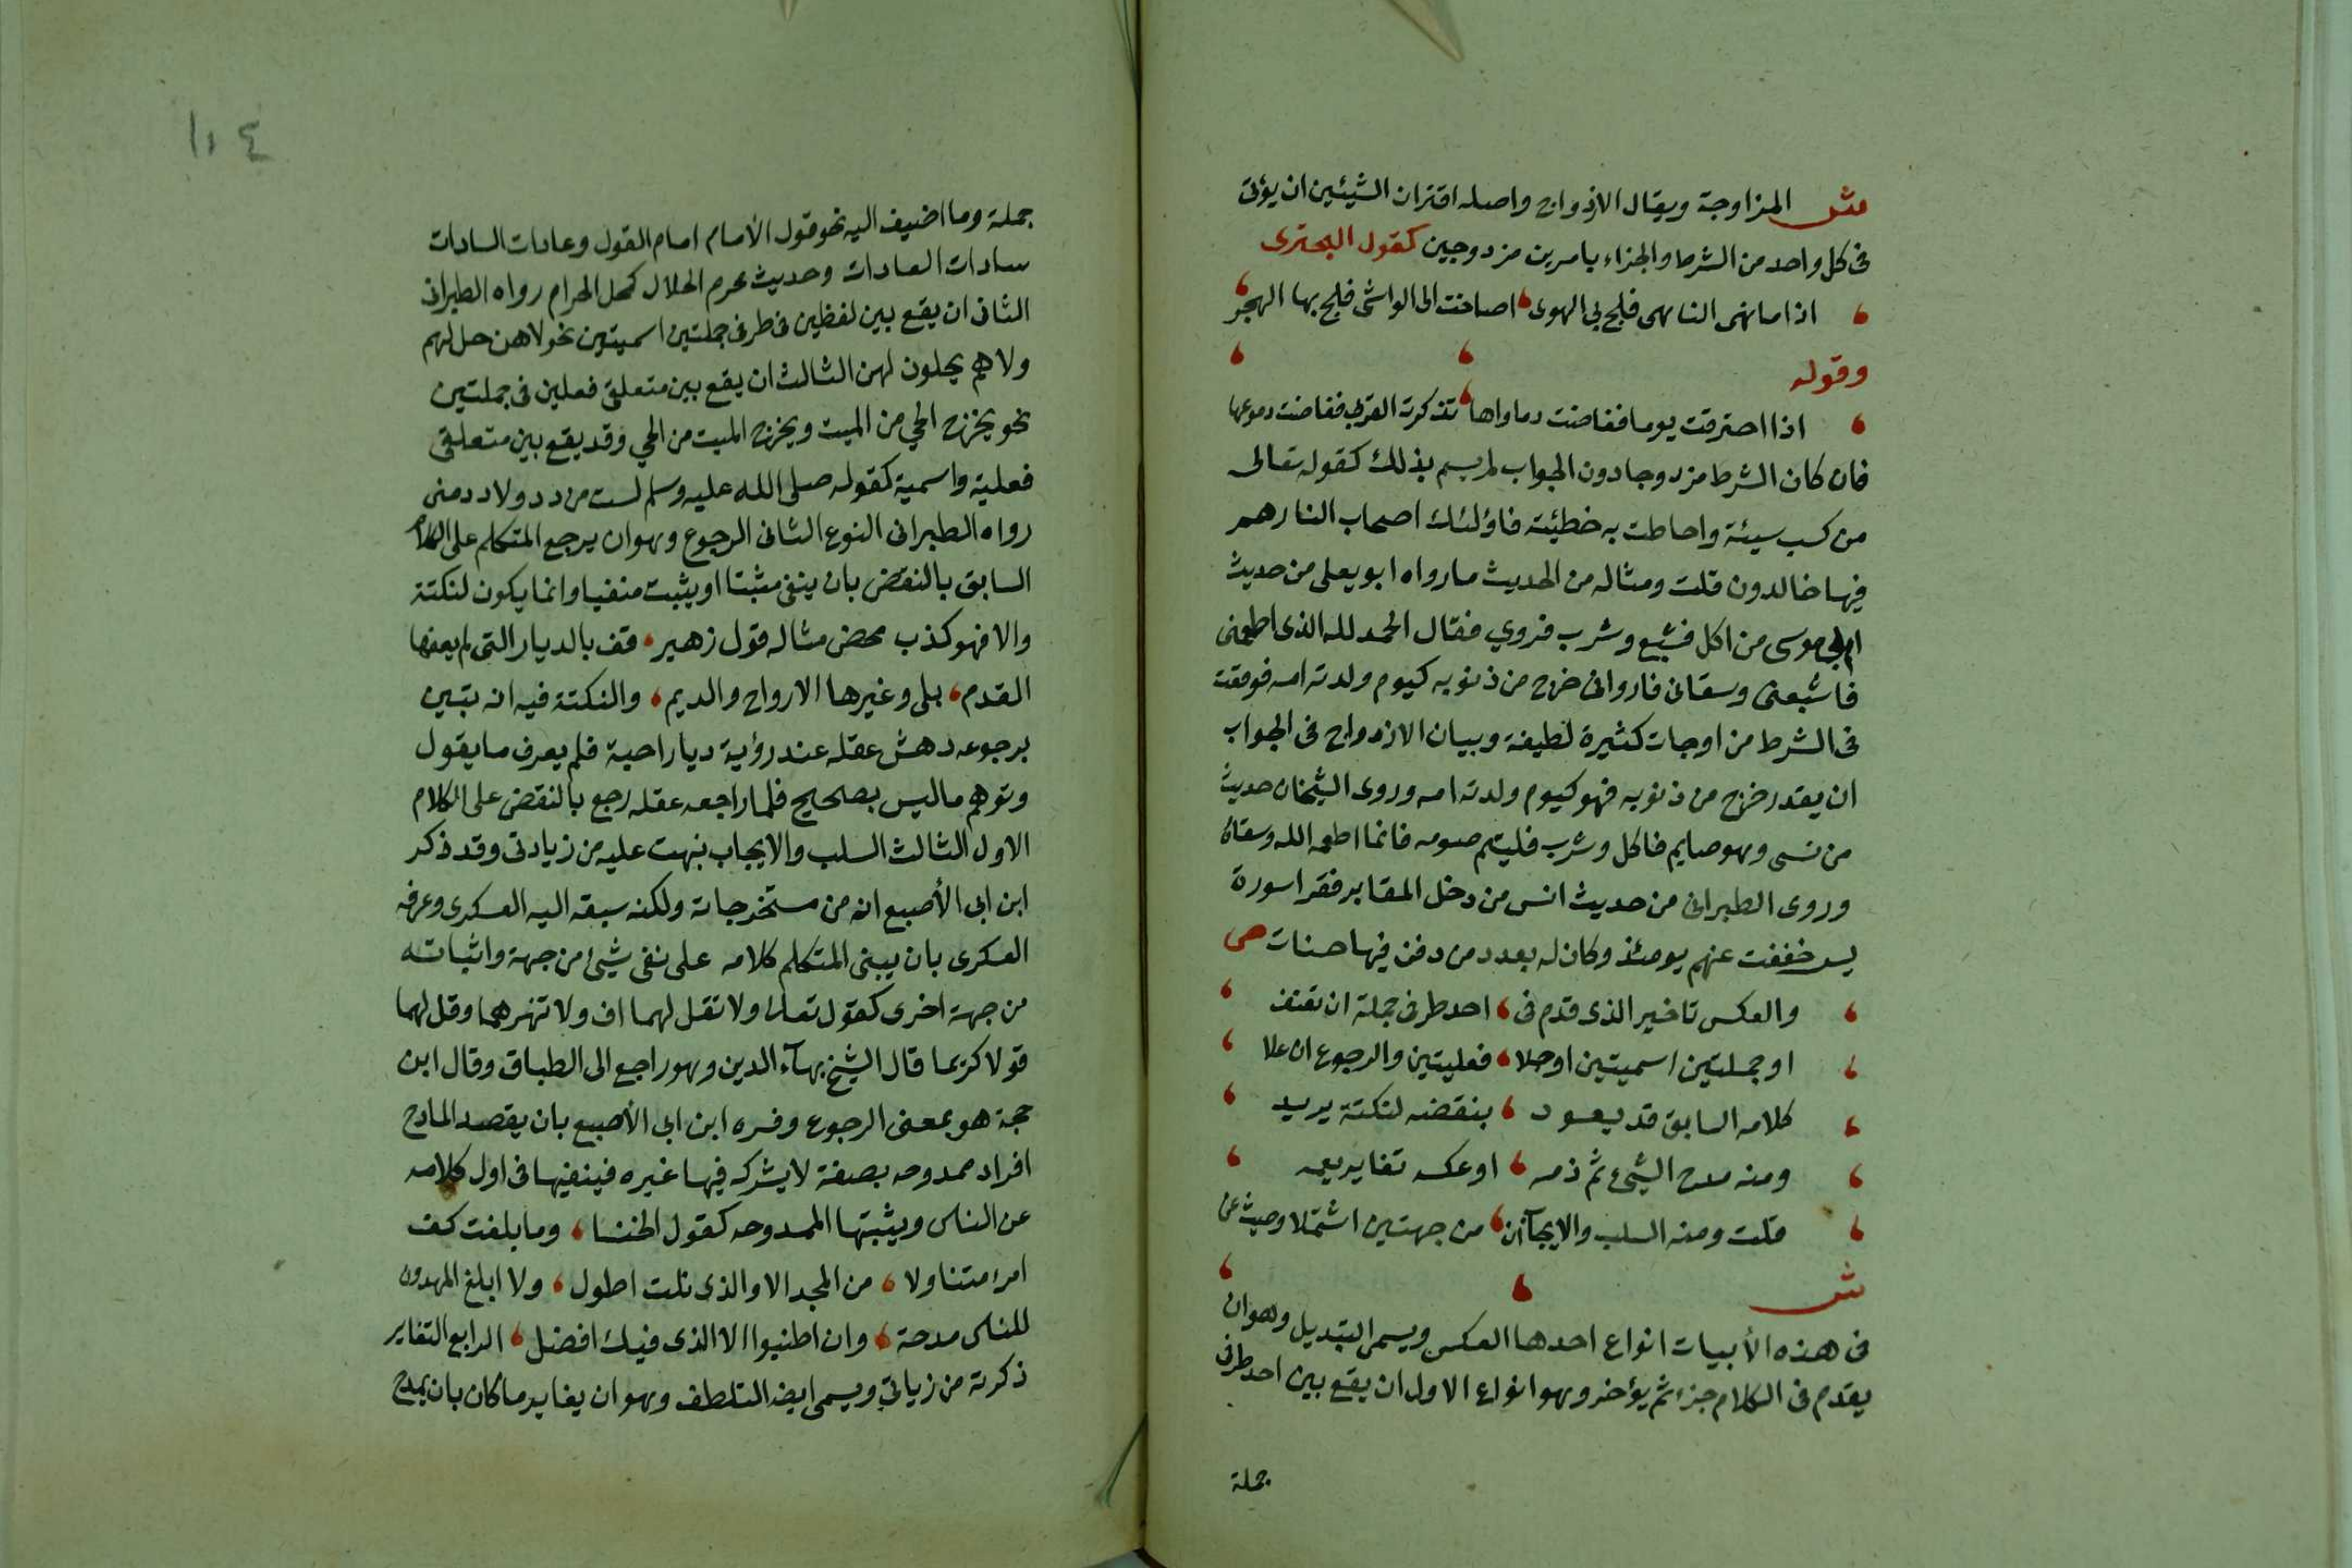 ش المزاوجة ويقال الازدواج واصله اقتران الشيئين ان يؤتى
فى كل واحد من الشرط والجزاء بامرين مزدوجين كقول البحترى
اذا ما نهى الناهى فلج بى الهوى، اصاخت الى الواشى فلج بها الهجر
وقوله
اذا احتربت يوما ففاضت دماواها، تذكرت القربى ففاضت دموعها
فان كان الشرط مزدوجا دون الجواب لم يسم بذلك كقوله تعالى
من كسب سيئة واحاطت به خطئيته فاؤلئك اصحاب النار هم
فيها خالدون قلت ومثاله من الحديث ما رواه ابو يعلى من حديث
ابى موسى من اكل فشبع وشرب فروي فقال الحمد لله الذى اطعمنى
فاشبعنى وسقانى فاروانى خرج من ذنوبه كيوم ولدته امه فوقعت
فى الشرط من اوجات كثيرة لطيفة وبيان الازدواج فى الجواب
ان يقدر خرج من ذنوبه فهو كيوم ولدته امه وروى الشيخان حديث
من نسى وهو صايم فاكل وشرب فليتم صومه فانما اطعمه الله وسقاه
وروى الطبرانى من حديث انس من دخل المقابر فقرا سورة
يس خففت عنهم يومئذ وكان له بعدد من دفن فيها حسنات ص
والعكس تاخير الذى قدم فى، احد طرفى جملة ان تقتف
او جملتين اسميتين او حلا، فعليتين والرجوع ان علا
كلامه السابق قد يعود، بنقضه لنكتة يريد
ومنه مدح الشىء ثم ذمه، او عكسه تغاير يعمه
قلت ومنه السلب والايجاب ان، من جهتين اشتملا وحيث عن
ش
فى هذه الأبيات انواع احدها العكس ويسمى التبديل وهو ان
يقدم فى الكلام جزء ثم يؤخر وهو انواع الاول ان يقع بين احد طرفى
جملة
١٠٤
جملة وما اضيف اليه نحو قول الأمام امام القول وعادات السادات
سادات العادات وحديث محرم الحلال كمحل الحرام رواه الطبرانى
الثانى ان يقع بين لفظين فى طرفى جملتين اسميتين نحو لا هن حل لهم
ولا هم يحلون لهن الثالث ان يقع بين متعلقى فعلين فى جملتين
نحو يخرج الحي من الميت ويخرج الميت من الحي وقد يقع بين متعلقى
فعلية واسمية كقوله صلى الله عليه وسلم لست من دد ولا دد منى
رواه الطبرانى النوع الثانى الرجوع وهو ان يرجع المتكلم على الكلام
السابق بالنقض بان ينفى مثبتا او يثبت منفيا وانما يكون لنكتة
والا فهو كذب محض مثاله قول زهير، قف بالديار التى لم يعفها
القدم، بلى وغيرها الارواح والديم، والنكتة فيه انه بتبين
برجوعه دهش عقله عند رؤية ديار احبة فلم يعرف ما يقول
وتوهم ما ليس بصحيح فلما راجعه عقله رجع بالنقض على الكلام
الاول الثالث السلب والايجاب نبهت عليه من زيادتى وقد ذكر
ابن ابى الأصبع انه من مستخرجاته ولكنه سبقه اليه العسكرى وعرفه
العسكرى بان يبنى المتكلم كلامه على نفى شىء من جهة واثباته
من جهة اخرى كقول تعالى ولا تقل لهما اف ولا تنهرهما وقل لهما
قولا كريما قال الشيخ بهآء الدين وهو راجع الى الطباق وقال ابن
حجة هو بمعنى الرجوع وفسره ابن ابى الأصبع بان يقصد المادح
افراد ممدوحه بصفة لا يشركه فيها غيره فينفيها فى اول كلامه
عن الناس ويثبتها الممدوحه كقول الخنسا، وما بلغت كف
امرء متناولا، من المجد الا والذى نلت اطول، ولا ابلغ المهدون
للناس مدحة، وان اطنبوا الا الذى فيك افضل، الرابع التغاير
ذكرته من زياتي ويسمى ايضا التلطف وهو ان يغاير ما كان بان يمدح